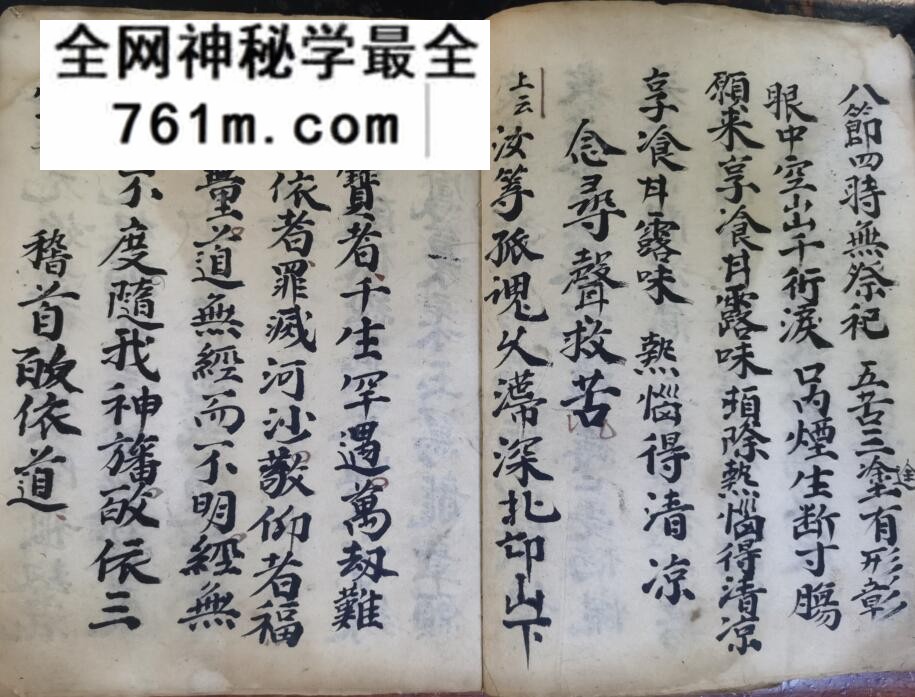 全网神秘学最全
761m.com
八節四時無祭祀 五苦三塗有形彰
途
眼中空山千術淚 口內煙生断寸腸
願来享飡甘露味頓除熱惱得清凉
享飡甘露味 熱惱得清凉
念尋聲救苦
上云
汝等孤魂久滯深扎卬山下
寳者千生罕遇萬劫難
依者罪滅河沙敬仰者福
量道無經而不明經無
不度隨我神旛皈依三
稽首皈依道